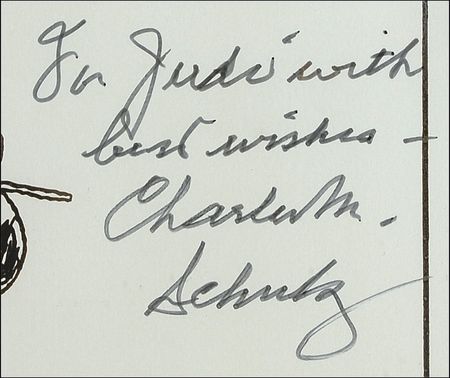 For Judi with
best wishes –
Charles M.
Schulz